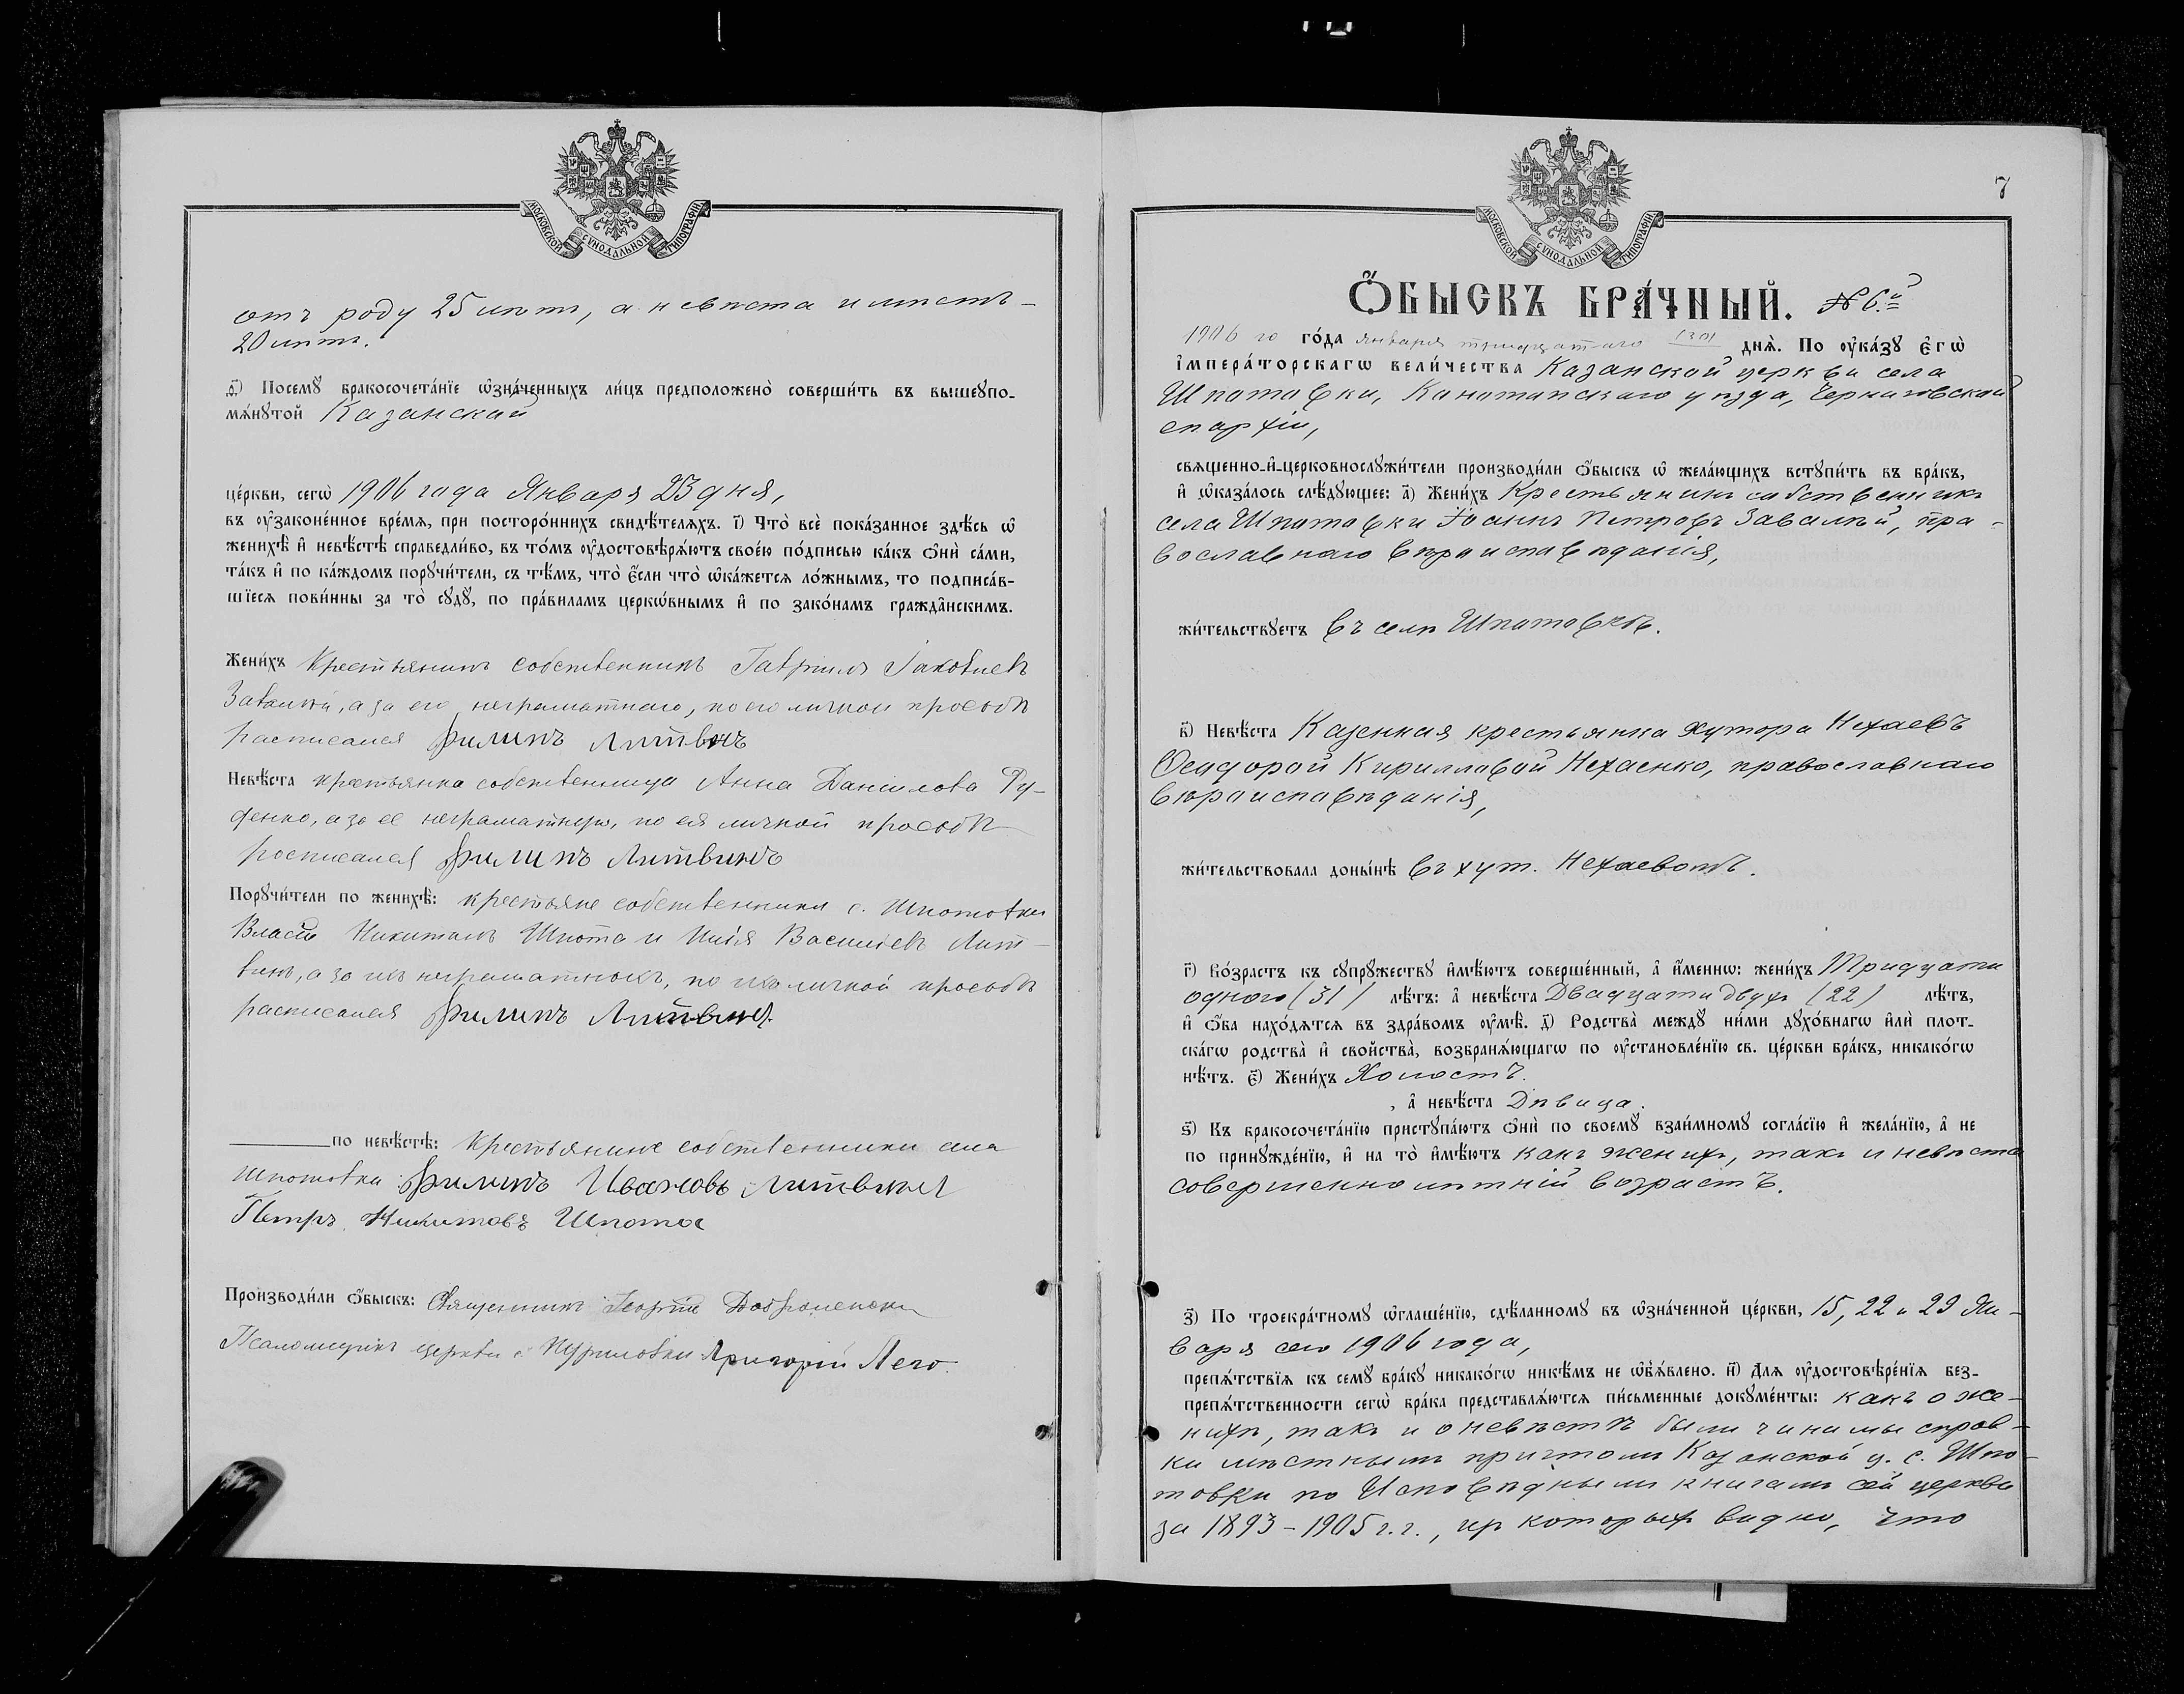 МОСКОВСКОЙ СѴНОДАЛЬНОЙ ТИПОГРАФІИ
отъ роду 25 лѣтъ, а невѣста имѣетъ –
20 лѣтъ.
д҃) Посемꙋ̀ бракосочета́нїе ѡ҆зна́ченныхъ ли́цъ предположено̀ соверши́ть въ вышеꙋпо-
мѧ́нꙋтой Казанской
це́ркви, сегѡ̀ 1906 года Января 23 дня,
въ ᲂу҆законе́нное вре́мѧ, при посторо́ннихъ свидѣ́телѧхъ. і҃) Что̀ всѐ пока́занное здѣ́сь ѡ҆
женихѣ̀ и҆ невѣ́стѣ справедли́во, въ то́мъ ᲂу҆достовѣрѧ́ютъ свое́ю по́дписью ка́къ ѻ҆нѝ са́ми,
та́къ и҆ по ка́ждомъ порꙋчи́тели, съ тѣ́мъ, что̀ є҆́сли что̀ ѡ҆ка́жется ло́жнымъ, то подписа́в-
шїесѧ пови́нны за то̀ сꙋдꙋ̀, по пра́виламъ церко́внымъ и҆ по зако́намъ гражда́нскимъ.
Жени́хъ Крестьянинъ собственникъ Гавріилъ Іаковлевъ
Завалій, а за его неграматнаго, по его личной просьбѣ
расписался Филипъ Литвинъ
Невѣ́ста крестьянка собственница Анна Даніилова Ру-
денко, а за ее неграматную, по ея личной просьбѣ
росписался Филипъ Литвинъ
Порꙋчи́тели по женихѣ̀: крестьяне собственники с. Шпотовки
Власій Никитинъ Шпота и Илія Васильевъ Лит-
винъ, а за ихъ неграматныхъ, по ихъ личной просьбѣ
расписался Филипъ Литвинъ
по невѣ́стѣ: Крестьяните собственники села
Шпотовки Филипъ Ивановъ Литвинъ
Петръ Никитовъ Шпота
Производи́ли ѻ҆́быскъ: Священникъ Георгій
Псаломщикъ церкви с. Куриловки Григорій Лего.
7
МОСКОВСКОЙ СѴНОДАЛЬНОЙ ТИПОГРАФІИ
Ѻ҆́БЫСКЪ БРА́ЧНЫЙ. № 6.й
1906 го го́да января тридцатаго (30) днѧ̀. По ᲂу҆ка́зꙋ є҆гѡ̀
і҆мпера́торскагѡ вели́чества Казанской церкви села
Шпотовки, Конотопскаго уѣзда, Черниговской
епархіи,
свѧщенно-и҆-церковнослꙋжи́тели производи́ли ѻ҆́быскъ ѡ҆ жела́ющихъ встꙋпи́ть въ бра́къ,
и҆ ѡ҆каза́лось слѣ́дꙋющее: а҃) Жени́хъ Крестьянинъ собственникъ
села Шпотовки Іоаннъ Петровъ Завалій, пра-
вославнаго вѣроисповѣданія,
жи́тельствꙋетъ въ селѣ Шпотовкѣ.
в҃) Невѣ́ста Казенная крестьянка хутора Нехаевъ
Ѳеодорой Кирилловой Нехаенко, православнаго
вѣроисповѣданія,
жи́тельствовала доны́нѣ въ хут. Нехаевомъ.
г҃) Во́зрастъ къ сꙋпрꙋ́жествꙋ и҆мѣ́ютъ соверше́нный, а҆ и҆́меннѡ: жени́хъ Тридцати
одного (31) лѣ́тъ: а҆ невѣ́ста Двадцати двухъ (22) лѣ́тъ,
и҆ ѻ҆́ба нахо́дѧтсѧ въ здра́вомъ ᲂу҆мѣ̀. д҃) Родства̀ междꙋ̀ ни́ми дꙋхо́внагѡ и҆лѝ плот-
ска́гѡ родства̀ и҆ сво́йства̀, возбранѧ́ющагѡ по ᲂу҆становле́нїю св. це́ркви бра́къ, никако́гѡ
нѣ́тъ. є҃) Жени́хъ Холостъ.
, а҆ невѣ́ста Дѣвица.
ѕ҃) Къ бракосочета́нїю пристꙋпа́ютъ ѻ҆нѝ по своемꙋ̀ взаи́мномꙋ согла́сїю и҆ жела́нїю, а҆ не
по принꙋжде́нїю, и҆ на то̀ и҆мѣ́ютъ какъ женихъ, такъ и невѣста
совершеннолѣтній возрастъ.
з҃) По троекра́тномꙋ ѡ҆глаше́нїю, сдѣ́ланномꙋ въ ѡ҆зна́ченной це́ркви, 15, 22 и 29 Ян-
варя сего 1906 года,
препѧ́тствїѧ къ семꙋ̀ бра́кꙋ никако́гѡ никѣ́мъ не ѡ҆б̾ѧ́влено. и҃) Длѧ ᲂу҆достовѣре́нїѧ без-
препѧ́тственности сегѡ̀ бра́ка представлѧ́ютсѧ пи́сьменные докꙋме́нты: какъ о же-
нихѣ, такъ и о невѣстѣ были чинимы справ-
ки мѣстнымъ причтомъ Казанской ц. с. Шпо-
товки по Исповѣднымъ книгамъ сей церкви
за 1893 – 1905 г.г., изъ которыхъ видно, что